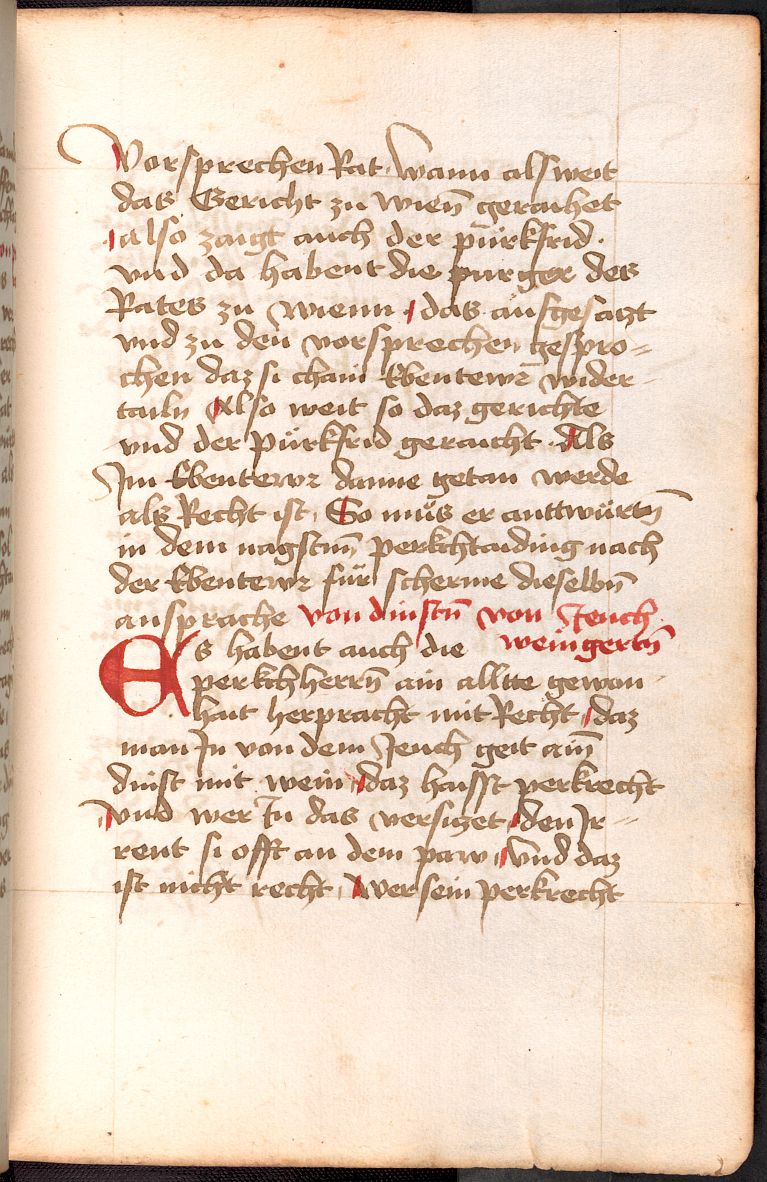 Vorsprechen Rat · Wann als weit
das Gericht zu wienn geraichet
also zaigt auch der purkfrid ·
vnd da habent die purger des
Rates zu wienn / das aufgesaczt
vnd zu den vorsprechen gespro=
chen daz si chain Ebentewr wider-
tailn Also weit so daz gerichte
vnd der pürkfrid geraicht · Als
Im Ebentewr danne getan werde
als Recht ist / So můs er anttwürtn̄
in dem nagstnn̄ perkchtaiding nach
der Ebentewr für scherme dieselbn̄
ansprache von dinstn̄ von Jeuch
weingertn̄
Es habent auch die
perkchherrn̄ ain alltte gewon-
hait herpracht mit Recht / daz
man In von dem Jeuch geit ain̄
dinst mit wein / daz haisst perkrecht
Vnd wer In das versiczet / den Ir=
rent si offt an dem paw / Vnd daz
ist nicht recht / Wer sein perkrecht